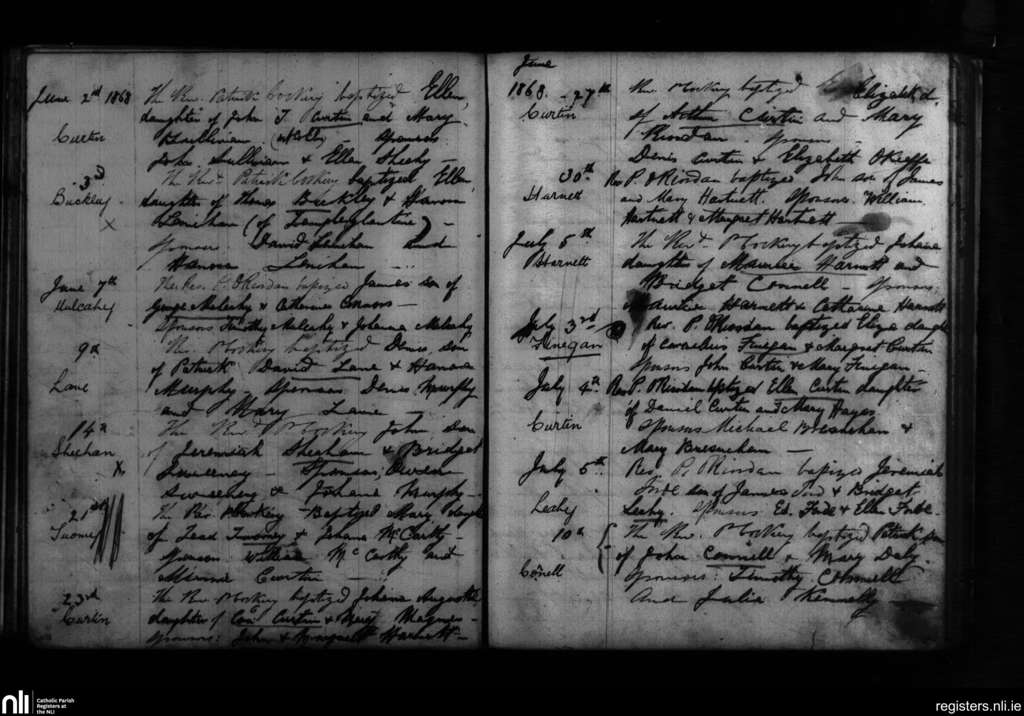 June 2nd 1868 The Rev. Patrick Cocking baptized Ellen,
daughter of John T. Curtin and Mary
Curtin Sullivan Sponsors
John Sullivan & Ellen Sheehy —
3rd The Revd. Patrick Cocking baptized Ellen
Buckley daughter of Thomas Buckley & Hanora
x Lenihan (of Templeglantine) —
Sponsors David Lenihan and
Hanora Lenihan
June 7th The Rev. P. O'Riordan baptized James son of
Mulcahy George Mulcahy & Catherine Connors —
Sponsors Timothy Mulcahy & Johanna Mulcahy
9th The Rev. baptized Denis son
of Patrick David Lane & Hanora
Lane Murphy Sponsors Denis Murphy
and Mary Lane —
14th The Revd. P Cocking John son
Sheehan of Jeremiah Sheehan & Bridget
x Sweeney — Sponsors, Owen
Sweeney & Johana Murphy —
21st The Rev. Baptized Mary daught
Twomey of Twomey & Johana McCarthy —
Sponsors William McCarthy and
Curtin
23rd The Rev baptized Johana
Curtin daughter of Con Curtin & Mary
Sponsors: John & Margaret Harnett —
June
1868. 27th Rev. P Cocking baptized Elizabeth d.
Curtin of Arthur Curtin and Mary
Riordan. Sponsors —
Denis Curtin & Elizabeth O'Keeffe
30th Rev P. O'Riordan baptized John son of James
Harnett and Mary Hartnett. Sponsors. William
Hartnett & Margret Hartnett
July 5th The Revd. P Cocking baptized Johana
Harnett daughter of Maurice Harnett and
Bridget Connell — Sponsors:
Maurice Harnett & Catharine Harnett
July 3rd Rev. P. O'Riordan baptized Eliza daught
Finegan of Cornelius Finegan & Margret Curtin
Sponsors John Curtin & Mary Finegan —
July 4th Rev P. O'Riordan baptized Ellen Curtin daughter
of Daniel Curtin and Mary Hayes
Curtin Sponsors Michael Bresnehan &
Mary Bresnehan —
July 5th Rev. P. O'Riordan baptized Jeremiah
son of James & Bridget
Leahy Leahy. Sponsors Ed. & Ellen
10th The Rev. P Cocking baptized Patrick son
of John Connell & Mary Daly
Conell Sponsors: Timothy Connell
And Julia Kennelly
nli Catholic Parish
Registers at
the NLI
registers.nli.ie